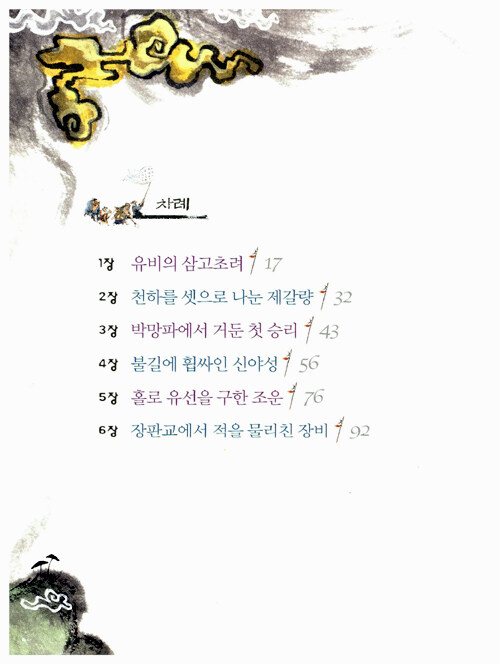 차례
1장 유비의 삼고초려 17
2장 천하를 셋으로 나눈 제갈량 32
3장 박망파에서 거둔 첫 승리 43
4장 불길에 휩싸인 신야성 56
5장 홀로 유선을 구한 조운 76
6장 장판교에서 적을 물리친 장비 92